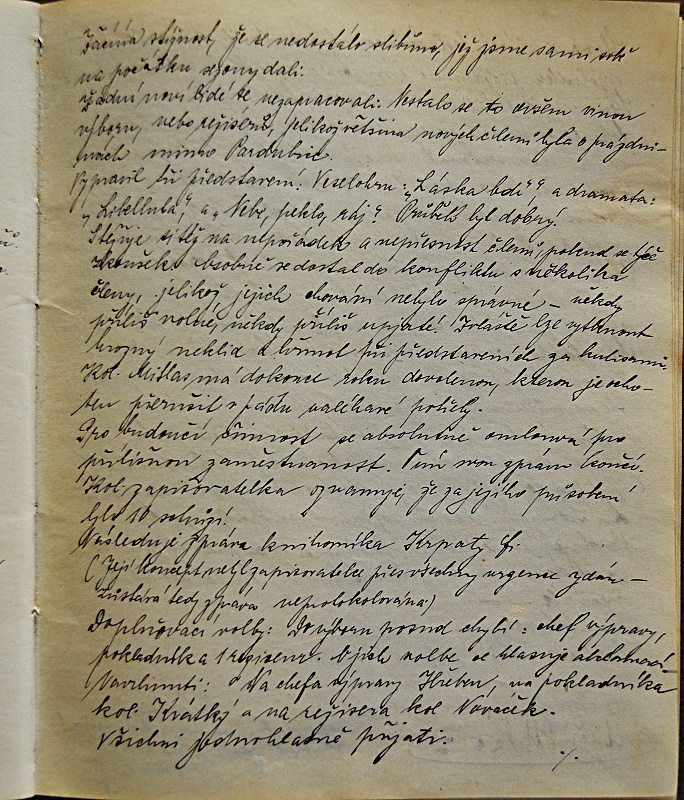 stížnost, že se nedostálo slibům, jež jsme sami sobě
na počátku sezony dali.
Žádní noví lidé se nezapracovali. Nestalo se to ovšem vinou
výboru, nebo režisérů, jelikož většina nových členů byla o prázdni-
nách mimo Pardubic.
Vypravil tři představení. Veselohru: „Láska bdí" a dramata:
„Libellula", a „Nebe, peklo, ráj". Průběh byl dobrý.
Stěžuje si též na nepořádek a nepřesnost členů, pokud se týče
zkoušek. Osobně se dostal do konfliktu s několika
členy, jelikož jejich chování nebylo správné – někdy
příliš volné, někdy příliš upjaté. Zvláště lze vytknout
hrozný neklid a hřmot při představeních za kulisami.
Kol. má do konce roku dovolenou, kterou je ocho-
ten přerušit v pádu naléhavé potřeby.
Pro budoucí činnost se absolutně omlouvá pro
přílišnou zaměstnanost. Tím svou zprávu končí.
Kol. zapisovatelka oznamuje, že za jejího působení
bylo 10 schůzí.
Následuje zpráva knihovníka Krpaty
(Její koncept nebyl zapisovatelce přes všechny urgence vydán –
zůstává tedy zpráva neprotokolována.)
Doplňovací volby: Do výboru posud chybí: chef výpravy,
pokladník a 1 režisér. O jich volbě se hlasuje
Navrhnuti: Na chefa výpravy na pokladníka
kol. Krátký a na režiséra kol. Nováček.
Všichni jednohlasně přijati.
./.